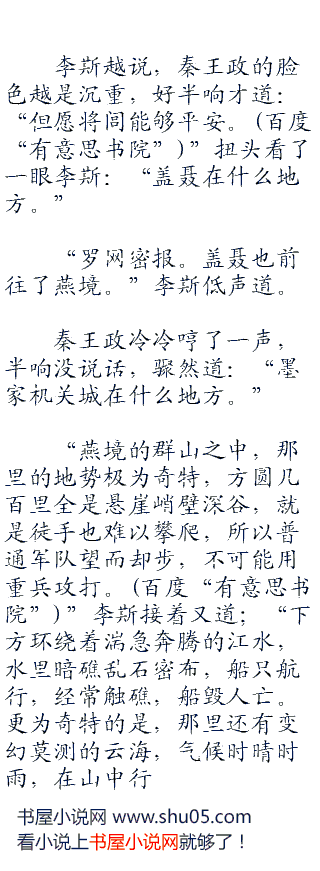 李斯越说，秦王政的脸
色越是沉重，好半晌才道：
“但愿将闾能够平安。(百度
“有意思书院”)”扭头看了
一眼李斯：“盖聂在什么地
方。”
“罗网密报。盖聂也前
往了燕境。”李斯低声道。
秦王政冷冷哼了一声，
半晌没说话，骤然道：“墨
家机关城在什么地方。”
“燕境的群山之中，那
里的地势极为奇特，方圆几
百里全是悬崖峭壁深谷，就
是徒手也难以攀爬，所以普
通军队望而却步，不可能用
重兵攻打。(百度“有意思书
院”)”李斯接着又道；“下
方环绕着湍急奔腾的江水，
水里暗礁乱石密布，船只航
行，经常触礁，船毁人亡。
更为奇特的是，那里还有变
幻莫测的云海，气候时晴时
雨，在山中行
书屋小说网 www.shu05.com
看小说上书屋小说网就够了！